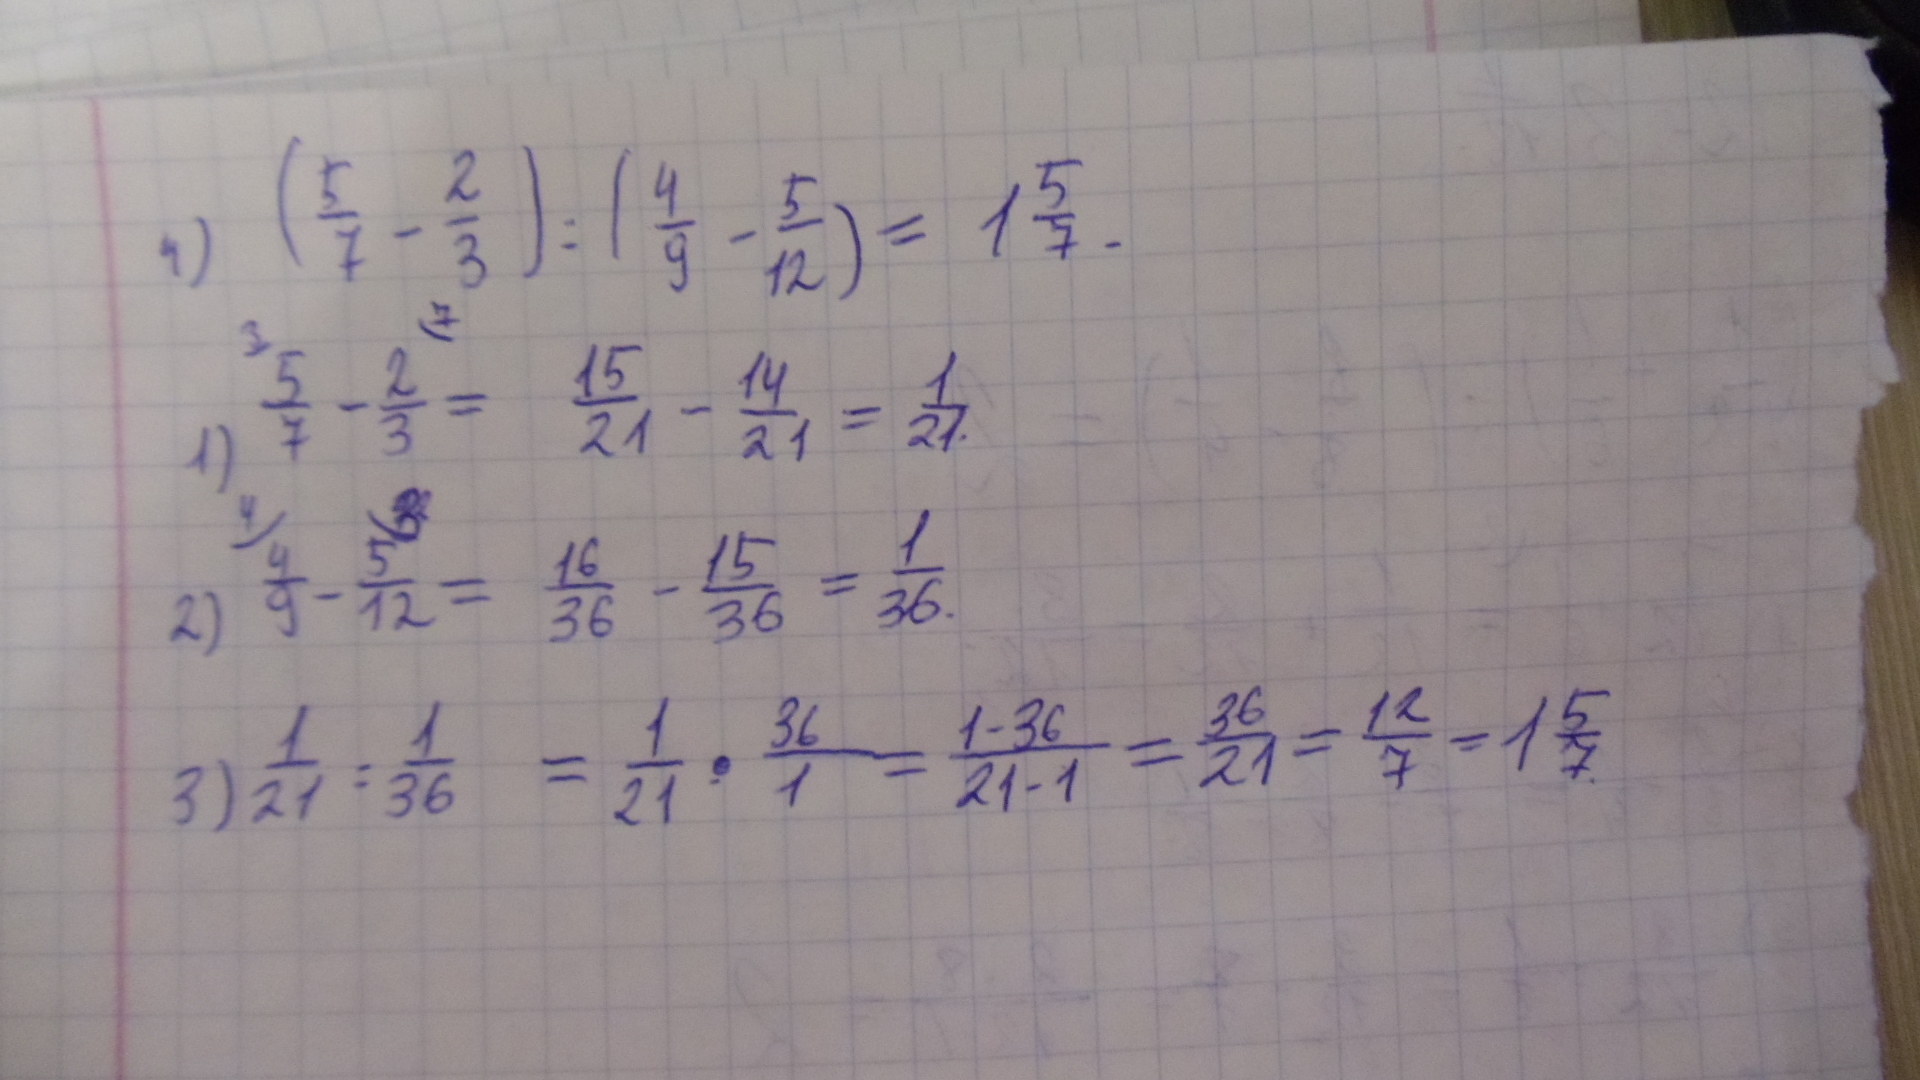 4) (5/7 - 2/3) : (4/9 - 5/12) = 1 5/7.
1) ³⁾5/7 - 2/3⁽⁷ = 15/21 - 14/21 = 1/21.
2) ⁴⁾4/9 - 5/12 = 16/36 - 15/36 = 1/36.
3) 1/21 : 1/36 = 1/21 · 36/1 = 1·36/21·1 = 36/21 = 12/7 = 1 5/7.